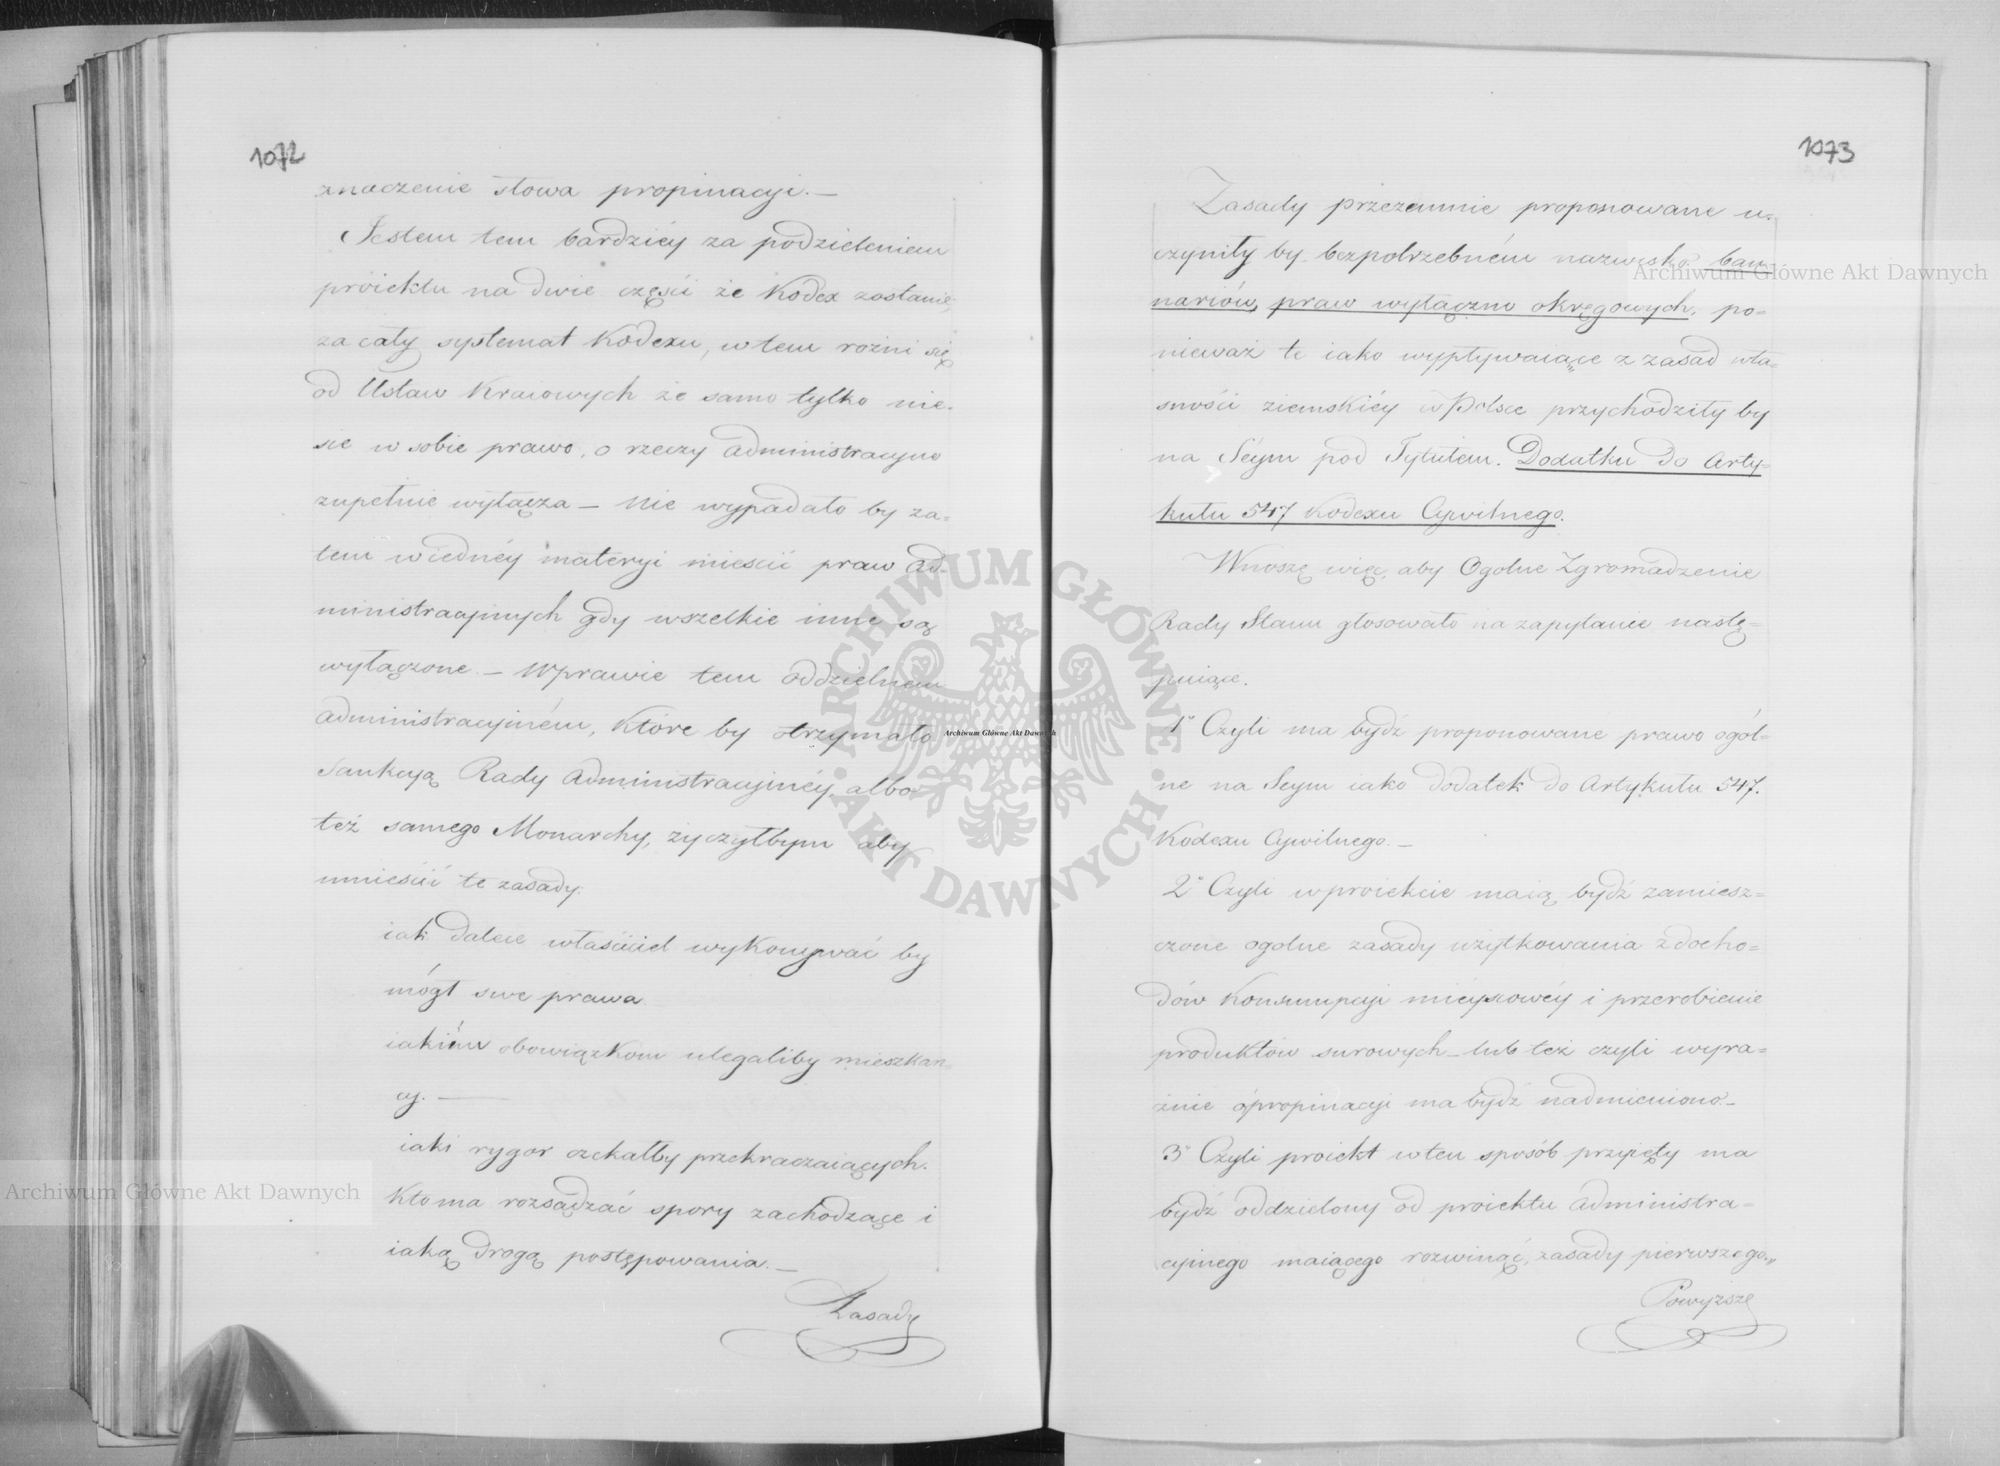 1072
znaczenie słowa propinacyi. —
Jestem tem bardziéy za podzieleniem
proiektu na dwie części że Kodex zostanie
za cały systemat Kodexu, w tem rożni się
od Ustaw Kraiowych że samo tylko nie-
sie w sobie prawo, o rzeczy administracyino
zupełnie wyłącza — Nie wypadało by za=
tem w iednéy materyi mieścić praw ad-
ministracyinych gdy wszelkie inne są
wyłączone. — W prawie tem oddzielnem
administracyiném, które by otrzymało
Sankcyą Rady Administracyinéy, albo
też samego Monarchy, życzyłbym aby
umieścić te zasady.
iak dalece właściciel wykonywać by
mógł swe prawa.
iakim obowiązkom ulegaliby mieszkań=
cy. —
iaki rygor czekałby przekraczaiących.
Kto ma rozsądzać spory zachodzące i
iaką drogą postępowania. —
Zasady
1073
Zasady przezemnie proponowane u-
czyniły by bezpotrzebném nazwisko ban
nariów, praw wyłączno okręgowych, po=
nieważ te iako wypływaiące z zasad wła=
sności ziemskiéy w Polsce przychodziły by
na Séym pod Tytułem. Dodatku do Arty=
kułu 547 Kodexu Cywilnego.
Wnoszę więc, aby Ogolne Zgromadzenie
Rady Stanu głosowało na zapytanie nastę=
puiące.
1° Czyli ma bydź proponowane prawo ogól=
ne na Seym iako dodatek do Artykułu 547.
Kodexu Cywilnego. —
2° Czyli w proiekcie maią bydź zamiesz=
czone ogolne zasady użytkowania z docho=
dów Konsumpcyi mieyscowéy i przerobienie
produktów surowych — lub też czyli wyra=
źnie o propinacyi ma bydź nadmieniono. —
3° Czyli proiekt w ten sposób przyięty ma
bydź oddzielony od proiektu administra=
cyinego maiącego rozwinąć, zasady pierwszego."
Powyższe
Archiwum Główne Akt Dawnych
Archiwum Główne Akt Dawnych
Archiwum Główne Akt Dawnych
ARCHIWUM GŁÓWNE AKT DAWNYCH